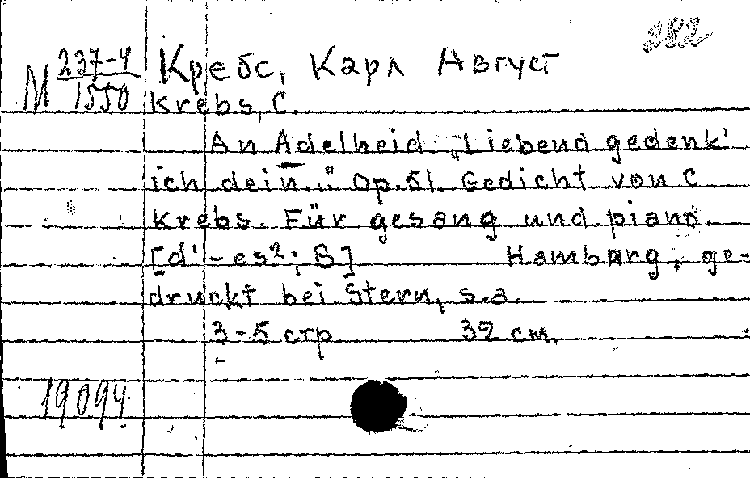 282
М 237-4
1550
Кребс, Карл Август
Krebs, C.
An Adelheid „Liebend gedenk'
ich dein..." Op. 51. Gedicht von C
Krebs. Für gesang und piano.
[d'-es²; B] Hamburg, ge-
druckt bei Stern, s.a.
3-5 стр 32 см.
19094